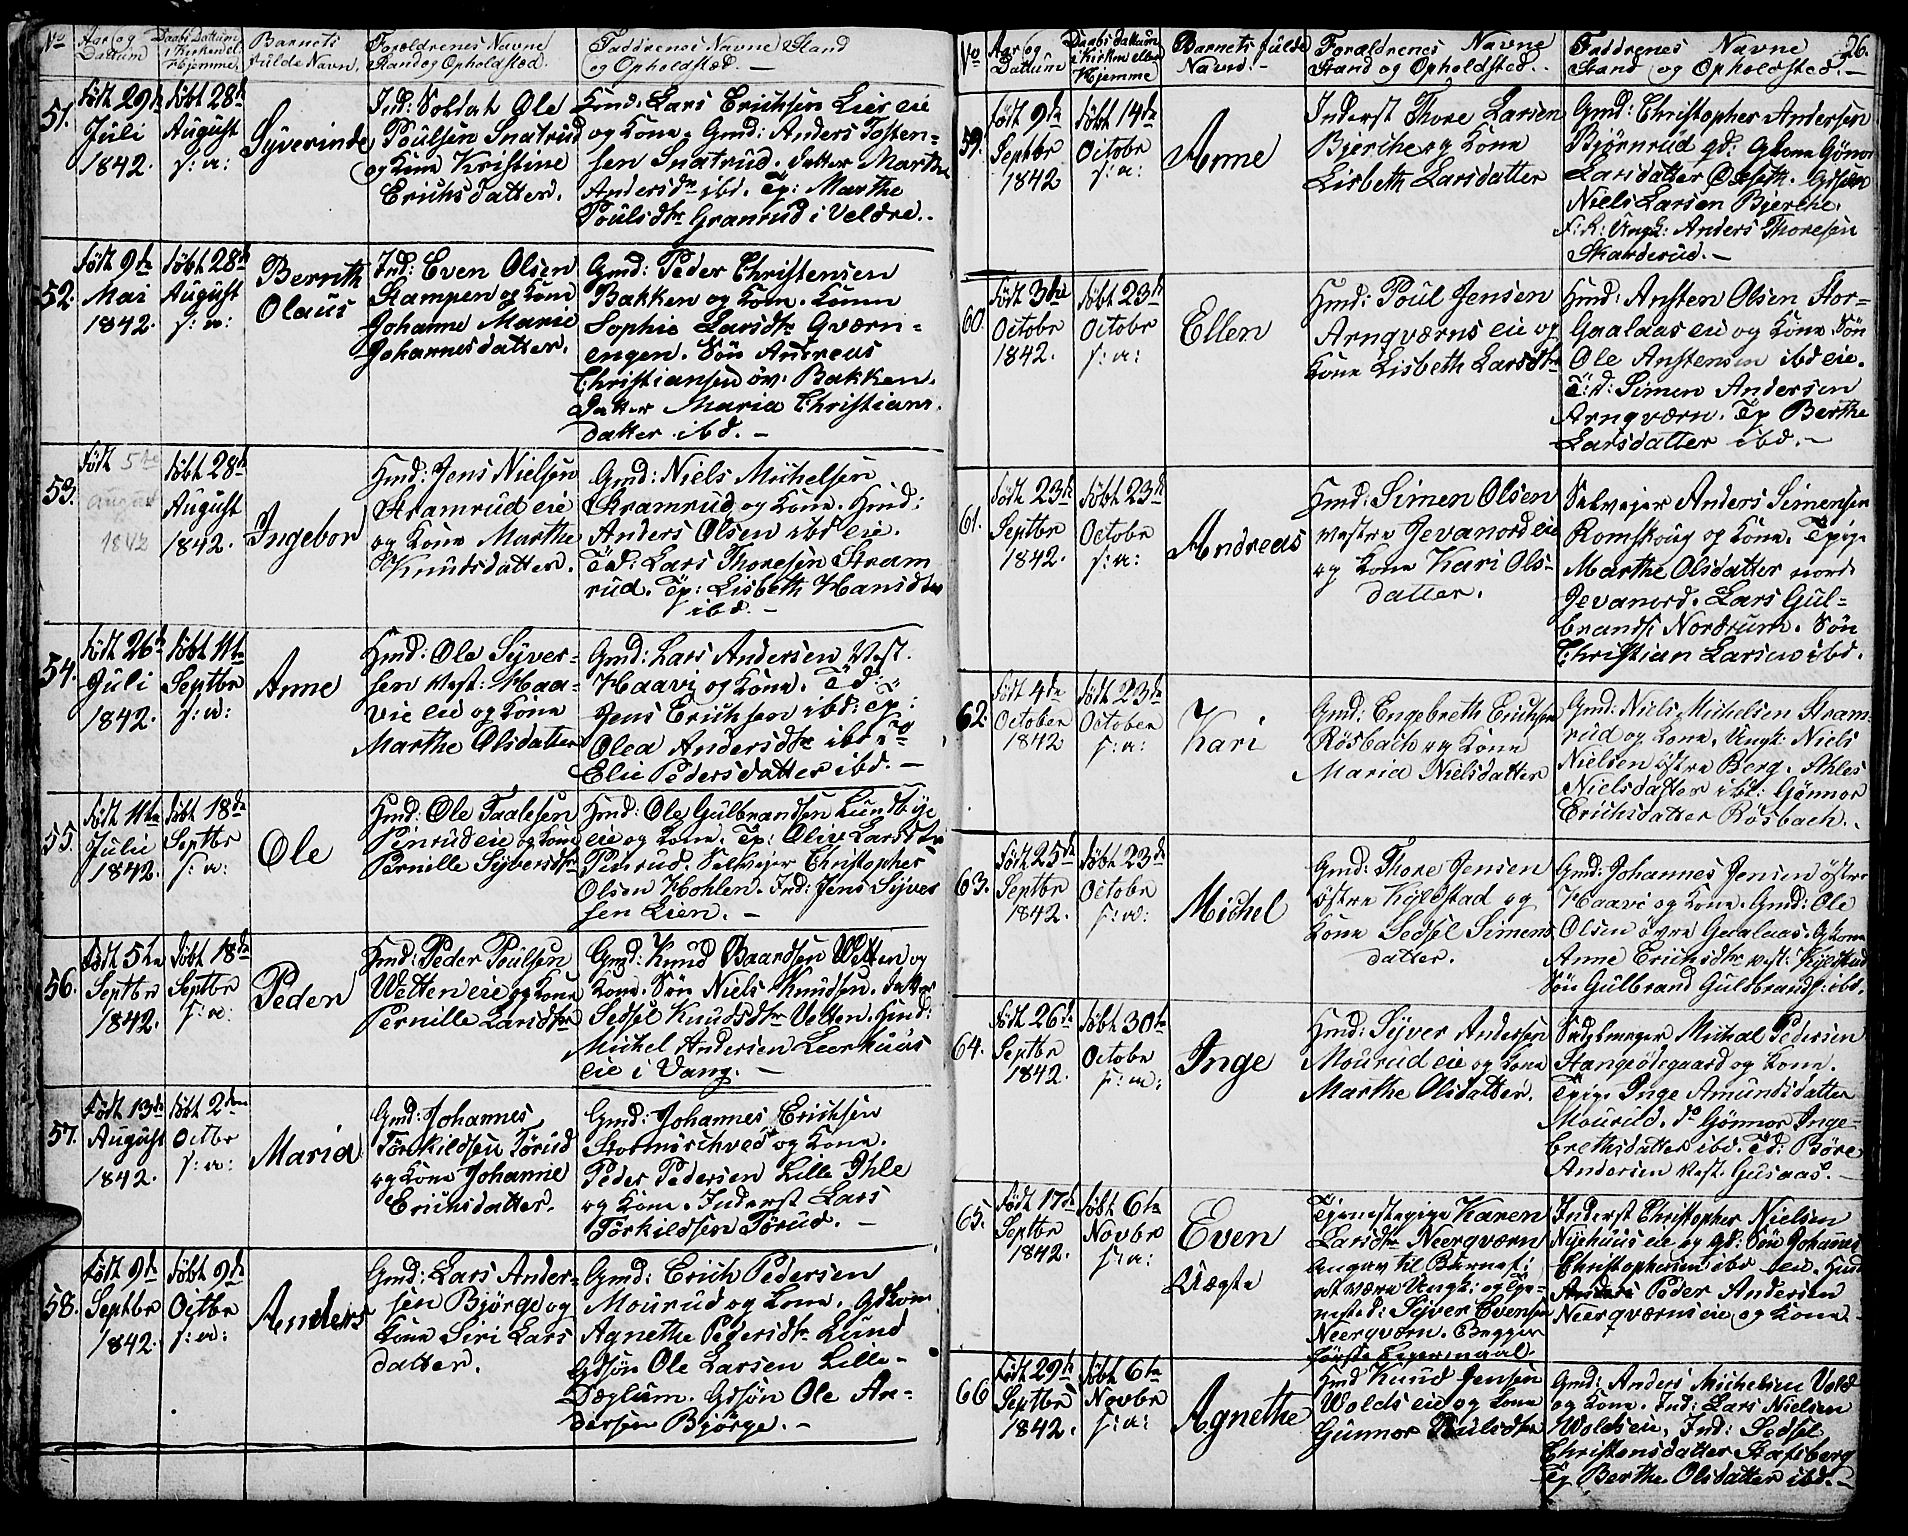 No
Aar og
Dattum
Daabs Dattum
i Kirken el.
Hjemme.
Barnets
fulde Navn.
Forældrenes Navne
Stand og Opholdsted.
Faddrenes Navne Stand
og Opholdsted. —
51.
Født 29de
Juli
1842.
døbt 28de
August
s: a:
Syverinde
Ind: Soldat Ole
Poulsen Snatrud
og Kone Kristine
Erichsdatter.
Hmd: Lars Erichsen Lier eie
og Kone. Gmd: Anders Tosten-
sen Snatrud. Datter Marthe
Andersdtr ibd. Tp: Marthe
Poulsdtr Granrud i Veldre.
52.
Født 9de
Mai
1842.
døbt 28de
August
s: a:
Bernth
Olaus
Ind: Even Olsen
Stampen og Kone
Johanne Marie
Johannesdatter.
Gmd: Peder Christensen
Bakken og Kone. Konen
Sophie Larsdtr Qværn-
engen. Søn Andreas
Christiansen öv: Bakken.
Datter Maria Christians-
datter ibd. —
53.
Født 5te
August
1842
døbt 28de
August
1842.
Ingebor
Hmd: Jens Nielsen
Stramrud eie
og Kone Marthe
Knudsdatter.
Gmd: Niels Michelsen
Stramrud og Kone. Hmd:
Anders Olsen ibd eie.
Td: Lars Thoresen Stram
rud. Tp: Lisbeth Hansdtr
ibd. —
54.
Født 26de
Juli
1842.
døbt 11te
Septbr
s: a:
Anne
Hmd: Ole Syver-
sen Vest: Haa-
vie eie og Kone
Marthe Olsdatter
Gmd: Lars Andersen Vest.
Haavi og Kone. Td:
Jens Erichsen ibd: Tp:
Olea Andersdtr ibd Do
Elie Pedersdatter ibd. —
55.
Født 11te
Julii
1842.
døbt 18de
Septbr
s: a:
Ole
Hmd: Ole Taalesen
Pinrud eie og Kone
Pernille Syversdtr
Hmd: Ole Gulbrandsen Lundbye
eie og Kone. Tp: Olive Larsdtr
Penrud. Selveier Christopher
Olsen Hohlen. Ind: Jens Syver
sen Lien. —
56.
Født 5te
Septbr
1842.
døbt 18de
Septbr
s: a:
Peder
Hmd: Peder Poulsen
Wetten eie og Kone
Pernille Larsdtr
Gmd: Knud Baardsen Wetten og
Kone. Søn Niels Knudsen. Datter
Sedsel Knudsdtr Vetten. Hmd:
Michel Andersen Leerhuus
eie i Vang. —
57.
Født 13de
August
1842.
døbt 2den
Octbr
s: a:
Maria
Gmd: Johannes
Torkildsen Torud
og Kone Johanne
Erichsdatter.
Gmd: Johannes Erichsen
Stormoschved og Kone.
Peder Pedersen Lille Ihle
og Kone. Inderst Lars
Torkildsen Torud. —
58.
Født 9de
Septbr
1842.
døbt 9de
Octbr
s: a:
Anders
Gmd: Lars Ander-
sen Bjørge og
Kone Siri Lars
datter.
Gmd: Erich Pedersen
Mourud og Kone. Gdkone
Agnethe Pedersdtr Lund
Gdsøn Ole Larsen Lille-
Dæglum. Gdsøn Ole An-
dersen Bjørge. —
No
Aar og
Dattum
Daabs Dattum
i Kirken eller
Hjemme
Barnets fulde
Navn. —
Forældrenes Navne
Stand og Opholdsted.
Faddrenes Navne
Stand og Opholdsted. —
26.
59.
Født 9de
Septbr
1842
døbt 14de
Octobr
s: a:
Anne
Inderst Thore Larsen
Bjerche og Kone
Lisbeth Larsdatter
Gmd: Christopher Andersen
Björnrud gd: Gkone Gönor
Larsdatter Deseth. Gdsøn
Niels Larsen Bjerche.
F. K: Ungk: Anders Thoresen
Skarderud. —
60.
Født 3die
Octobr
1842.
døbt 23de
Octobr
s: a:
Ellen
Hmd: Poul Jensen
Arnqværns eie og
Kone Lisbeth Larsdtr
Hmd: Ansten Olsen Stor-
Gaalaas eie og Kone. Søn
Ole Anstensen ibd eie.
T: d: Simen Andersen
Arnqværn. Tp Berthe
Larsdatter ibd. —
61.
Født 23de
Septbr
1842.
døbt 23de
Octobr
s: a:
Andreas
Hmd: Simen Olsen
vestre Jevanord eie
og Kone Kari Ols-
datter.
Selveier Anders Simensen
Romskoug og Kone. Tpig:
Marthe Olsdatter nord:
Jevanord. Lars Gul-
brands: Nordrum. Søn
Christian Larsen ibd.
62.
Født 4de
October
1842
Født 23de
October
s: a:
Kari
Gmd: Engebreth Erichsen
Rösbach og Kone
Maria Nielsdatter
Gmd: Niels Michelsen Stram-
rud og Kone. Ungk: Niels
Nielsen östre Berg. Ahles
Nielsdatter ibd: Gönnor
Erichsdatter Rösbach.
63.
Født 25de
Septbr
1842.
døbt 23de
Octobr
s: a:
Michel
Gmd: Thore Jensen
östre Kyldstad og
Kone Sedsel Simens
datter.
Gmd: Johannes Jensen östre
Haavi og Kone. Gmd: Ole
Olsen övre Gaalaas. Gkone
Anne Erichsdtr vest: Kyldstad
Søn Gulbrand Guldbrands: ibd.
64.
Født 26de
Septbr
1842.
døbt 30te
Octobr
s: a:
Inge
Hmd: Syver Andersen
Mourud eie og Kone
Marthe Olsdatter.
Michal Pedersen
Stangeödegaard og Kone.
Tpig: Inge Amundsdatter
Mourud. Do Gönnor Inge-
brethsdatter ibd. Td: Böre
Andersen Vest. Gusaas. —
65.
Født 17de
Septbr
1842.
døbt 6te
Novbr
s: a:
Even
Uægte
Tjenestepige Karen
Larsdtr Neerqværn
Angav til Barnef:
at være Ungk: og Tje-
nested: Syver Evensen
Neerqværn. Begges
første Leiermaal.
Inderst Christopher Nielsen
Nyehuus eie og gd: Søn Johannes
Christophersen ibd eie. Hmd
Peder Andersen
Neerqværns eie og Kone.
66
Født 29de
Septbr
1842.
døbt 6te
Novbr
s: a:
Agnethe
Hmd Knud Jensen
Wolds eie og Kone
Gunnor Poulsdtr
Gmd: Anders Michelsen Vold
og Kone. Ind: Lars Nielsen
Wolds eie. Ind: Sedsel
Christensdatter Stafsberg
Tp Berthe Olsdatter ibd. —